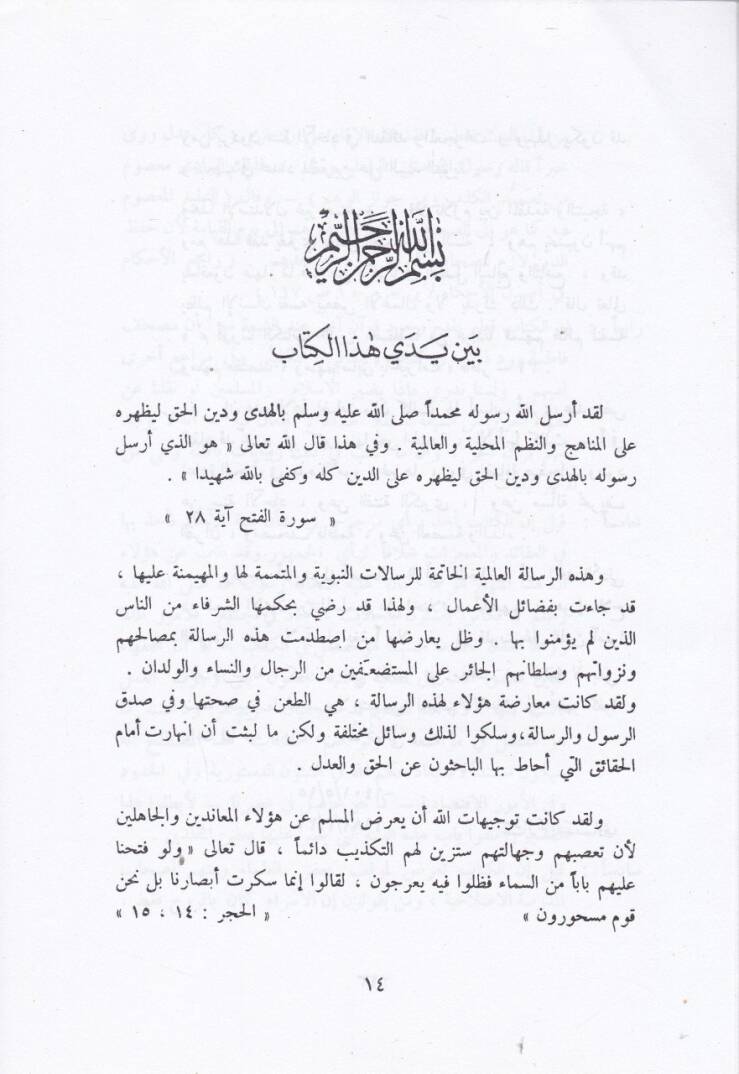 بسم الله الرحمن الرحيم
بَين يَدَي هٰذا الكِتاب
لقد أرسل الله رسوله محمداً صلى الله عليه وسلم بالهدى ودين الحق ليظهره
على المناهج والنظم المحلية والعالمية . وفي هذا قال الله تعالى « هو الذي أرسل
رسوله بالهدى ودين الحق ليظهره على الدين كله وكفى بالله شهيدا » .
« سورة الفتح آية ٢٨ »
وهذه الرسالة العالمية الخاتمة للرسالات النبوية والمتممة لها والمهيمنة عليها ،
قد جاءت بفضائل الأعمال ، ولهذا قد رضي بحكمها الشرفاء من الناس
الذين لم يؤمنوا بها . وظل يعارضها من اصطدمت هذه الرسالة بمصالحهم
ونزواتهم وسلطانهم الجائر على المستضعفين من الرجال والنساء والولدان .
ولقد كانت معارضة هؤلاء لهذه الرسالة ، هي الطعن في صحتها وفي صدق
الرسول والرسالة،وسلكوا لذلك وسائل مختلفة ولكن ما لبثت أن انهارت أمام
الحقائق التي أحاط بها الباحثون عن الحق والعدل .
ولقد كانت توجيهات الله أن يعرض المسلم عن هؤلاء المعاندين والجاهلين
لأن تعصبهم وجهالتهم ستزين لهم التكذيب دائماً ، قال تعالى «ولو فتحنا
عليهم باباً من السماء فظلوا فيه يعرجون ، لقالوا إنما سكرت أبصارنا بل نحن
قوم مسحورون » « الحجر : ١٤ ، ١٥ »
١٤